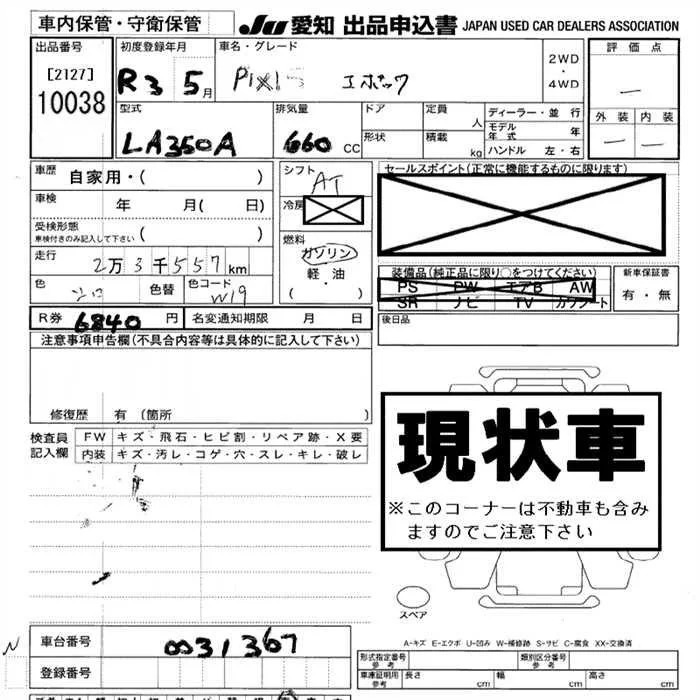 車内保管・守衛保管
JU 愛知 出品申込書 JAPAN USED CAR DEALERS ASSOCIATION
出品番号
[2127]
10038
初度登録年月
R3 5月
車名・グレード
PIXIS エポック
2WD
・
4WD
評価点
—
外装 内装
— —
型式
LA350A
排気量
660 CC
ドア
形状
定員 人
積載 kg
ディーラー・並行
モデル年式 年
ハンドル 左・右
車歴
自家用・( )
車検
年 月( 日)
受検形態
車検付きのみ記入して下さい ( )
走行
2万3千557km
色
シロ
色替
色コード
W19
シフト
AT
冷房
燃料
ガソリン
軽・油
( ・ )
セールスポイント(正常に機能するものに限ります)
装備品(純正品に限り○をつけてください)
PS PW エアB AW
SR ナビ TV カワシート
新車保証書
有・無
R券 6840 円
名変通知期限 月 日
後日品
注意事項申告欄(不具合内容等は具体的に記入して下さい)
修復歴 有 (箇所 )
検査員
記入欄
FW キズ・飛石・ヒビ割・リペア跡・X要
内装 キズ・汚レ・コゲ・穴・スレ・キレ・破レ
現状車
※このコーナーは不動車も含み
ますのでご注意下さい
スペア
A-キズ E-エクボ U-凹み W-補修跡 S-サビ C-腐食 XX-交換済
N
車台番号
0031367
登録番号
形式指定番号
参考
類別区分番号
参考
車庫証明用
参考
長さ cm
幅 cm
高さ cm